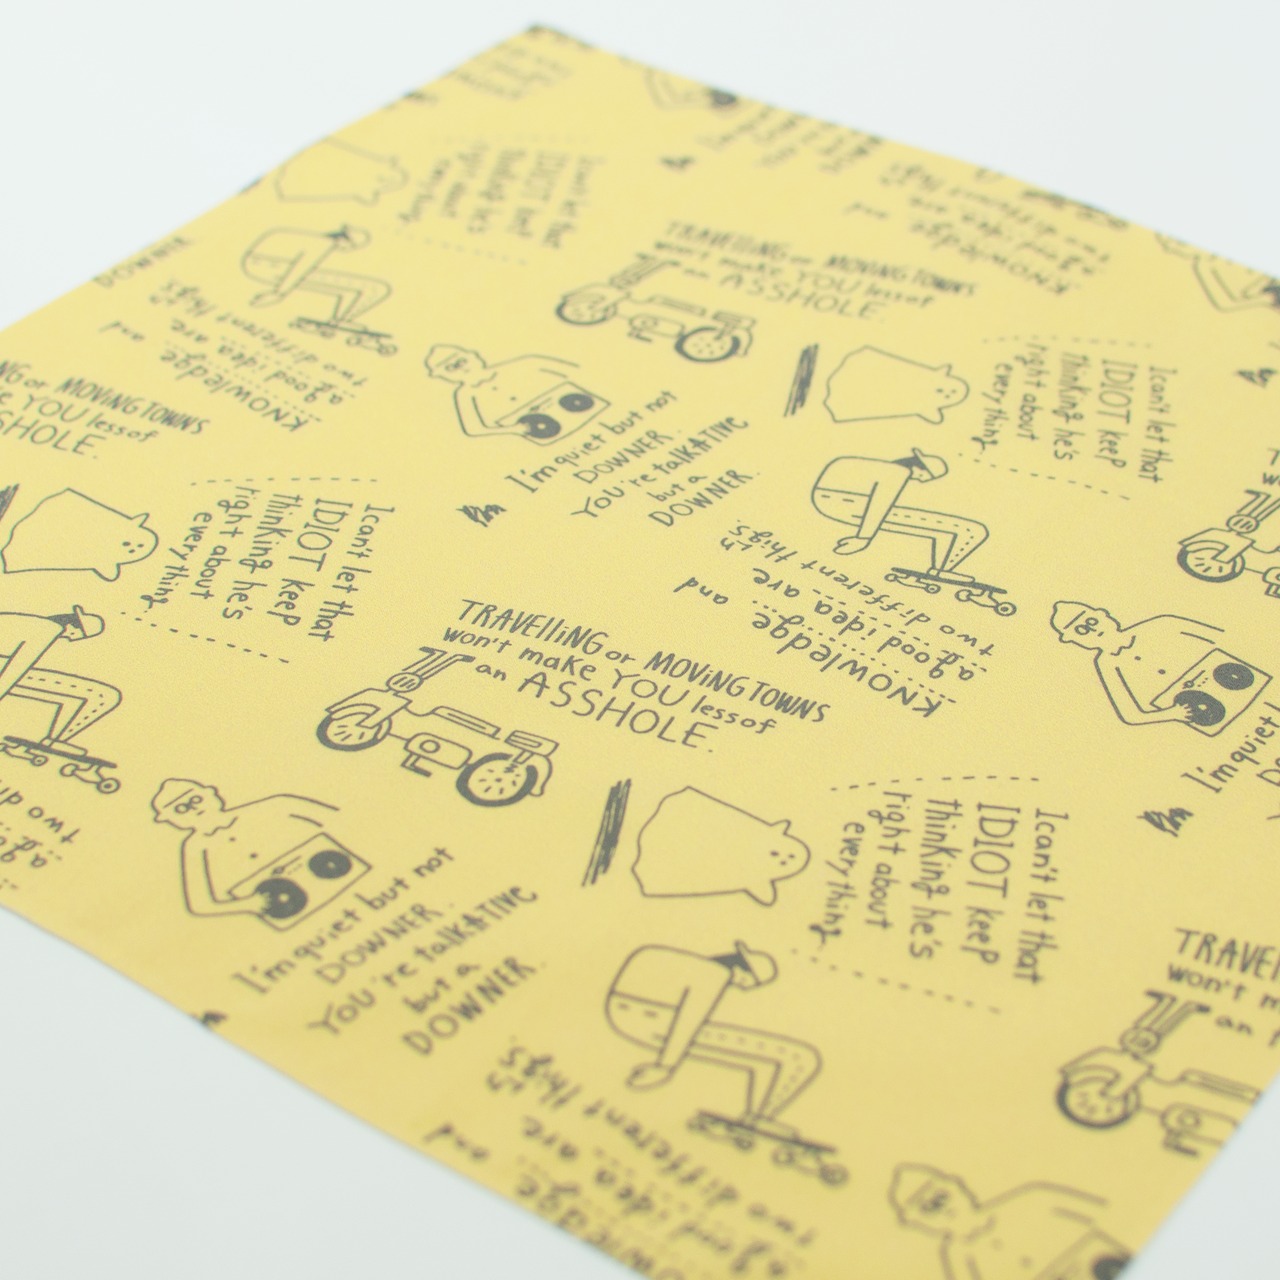 I can't let that
IDIOT keep
thinking he's
right about
everything.
TRAVELLiNG or MOViNG TOWNS
won't make YOU less of
an ASSHOLE.
DOWNER.
KNOWledge and
a good idea are
two different thigs
KNOWledge and
a good idea are
two different thigs
NG or MOViNG TOWNS
ke YOU less of
SSHOLE.
I'm quiet but not
DOWNER.
YOU're talkATiVE
but a
DOWNER.
I can't let that
IDIOT keep
thinking he's
right about
everything.
I can't let that
IDIOT keep
thinking he's
right about
everything.
KNOWledge and
a good idea are
two different thigs
TRAVELLiNG or MOViNG TOWNS
won't make YOU less of
an ASSHOLE.
I'm quiet
I'm quiet but not
DOWNER.
YOU're talkATiVE
but a
DOWNER.
I can't let that
IDIOT keep
thinking he's
right about
everything.
TRAVEL
won't m
an
KNOWledge and
a good idea are
two different thigs